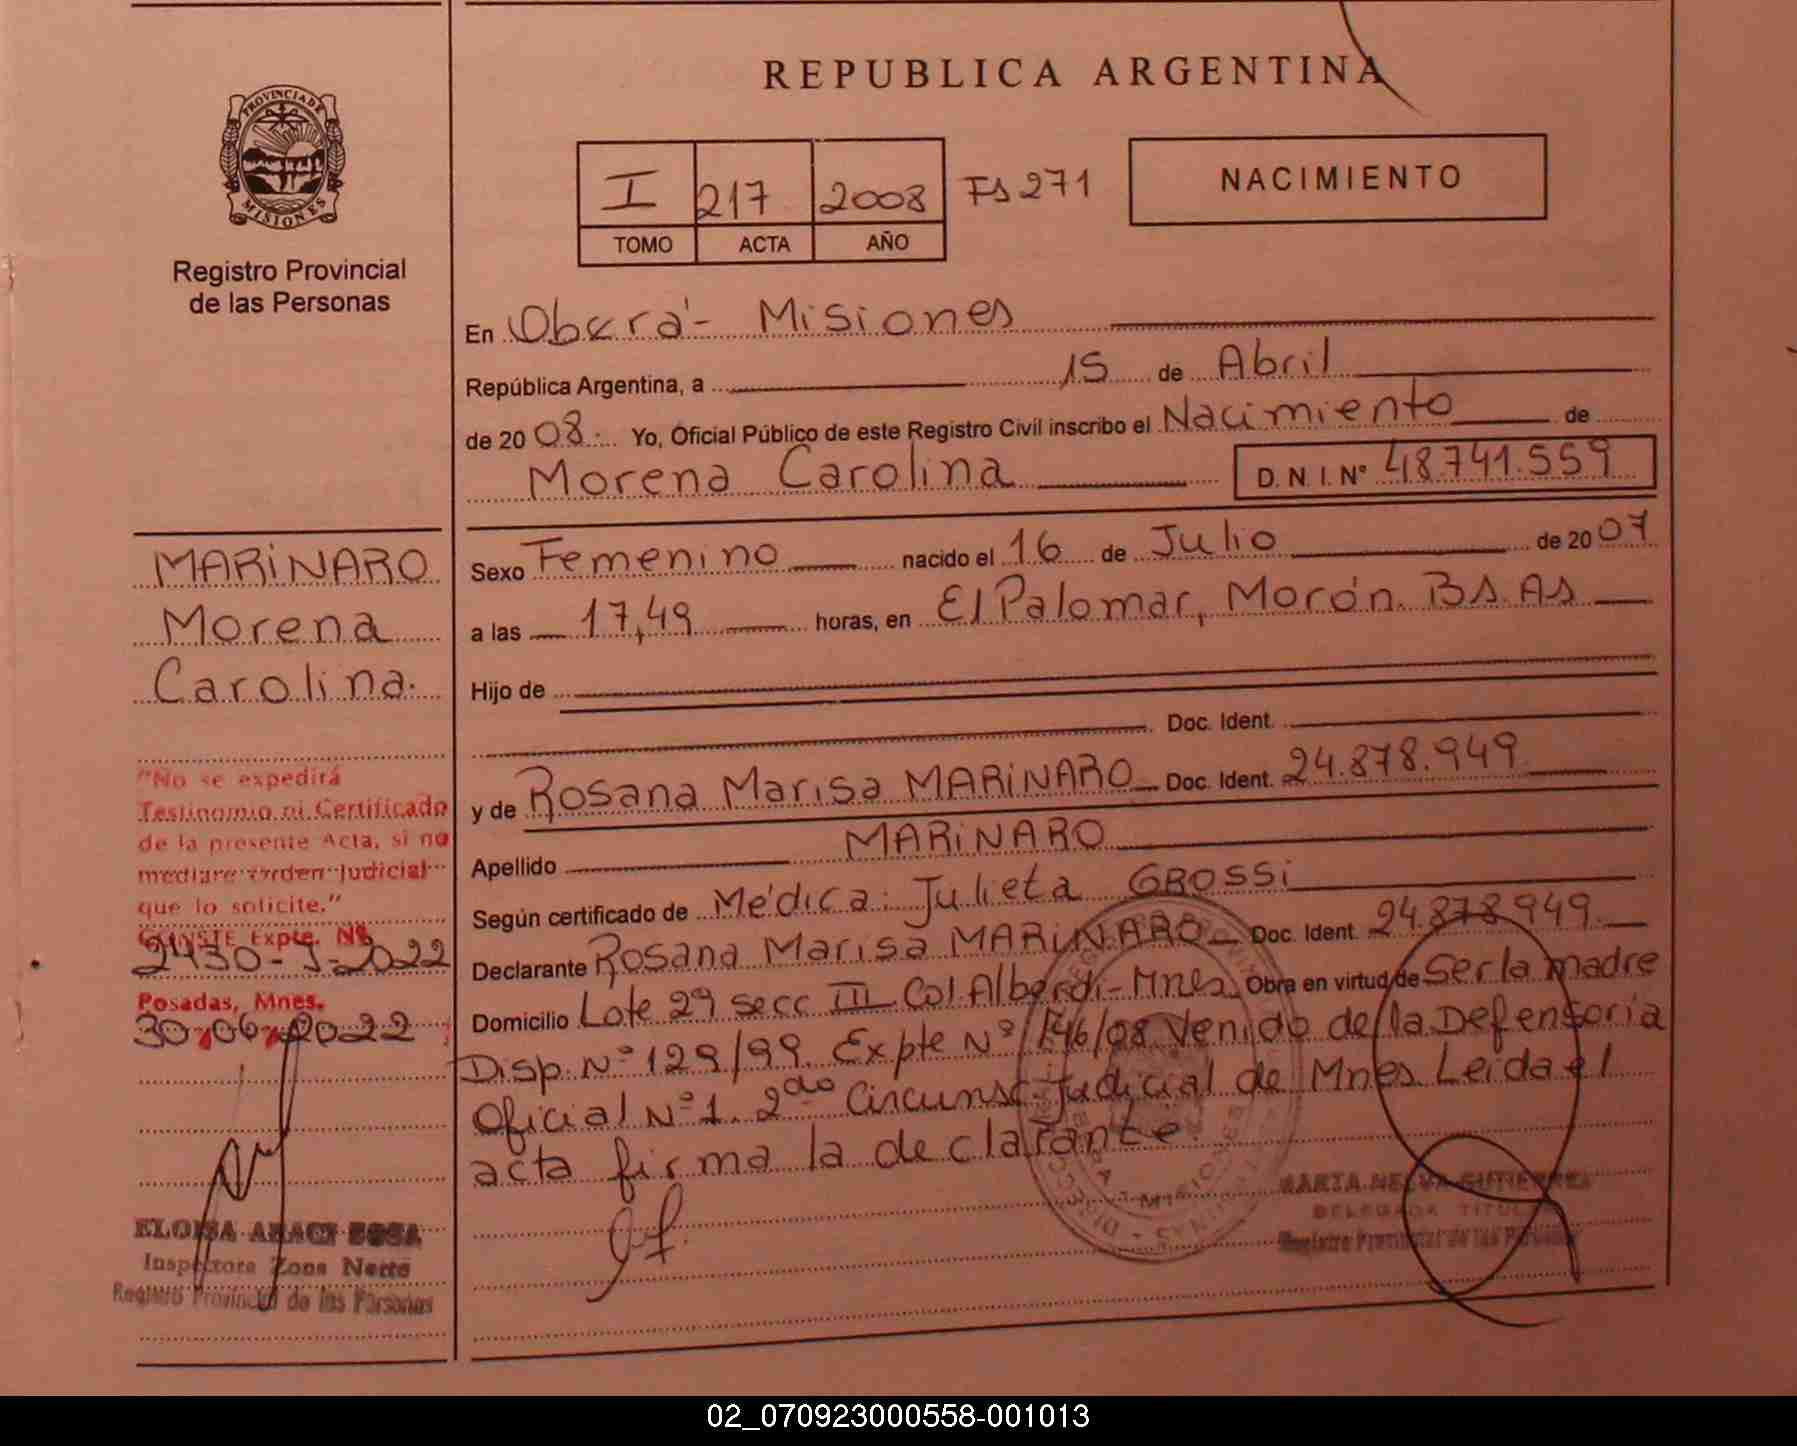 REPUBLICA ARGENTINA
PROVINCIA DE
MISIONES
Registro Provincial
de las Personas
I 217 2008 Fs 271
TOMO ACTA AÑO
NACIMIENTO
En Oberá - Misiones
República Argentina, a 15 de Abril
de 20 08. Yo, Oficial Público de este Registro Civil inscribo el Nacimiento de
Morena Carolina D.N.I. Nº 48.741.559
MARiNARO
Morena
Carolina.
Sexo Femenino nacido el 16 de Julio de 20 07
a las 17,49 horas, en El Palomar, Morón. Bs. As
Hijo de
Doc. Ident.
y de Rosana Marisa MARiNARO Doc. Ident. 24.878.949
Apellido MARiNARO
Según certificado de Médica: Julieta GROSSi
Declarante Rosana Marisa MARiNARO Doc. Ident. 24.878.949.
Domicilio Lote 29 secc III Col. Alberdi - Mnes. Obra en virtud de Ser la madre
Disp. Nº 129/99. Expte Nº 146/08 Venido de la Defensoría
Oficial Nº 1. 2da Circunsc. Judicial de Mnes. Leida el
acta firma la declarante.
"No se expedirá
Testimonio ni Certificado
de la presente Acta, si no
mediare orden Judicial
que lo solicite."
CONSTE Expte. Nº
2430-J-2022
Posadas, Mnes.
30,06,2022
ELOISA ARACI SOSA
Inspectora Zona Norte
Registro Provincial de las Personas
MARTA NELVA GUTIERREZ
DELEGADA TITULAR
Registro Provincial de las Personas
02_070923000558-001013